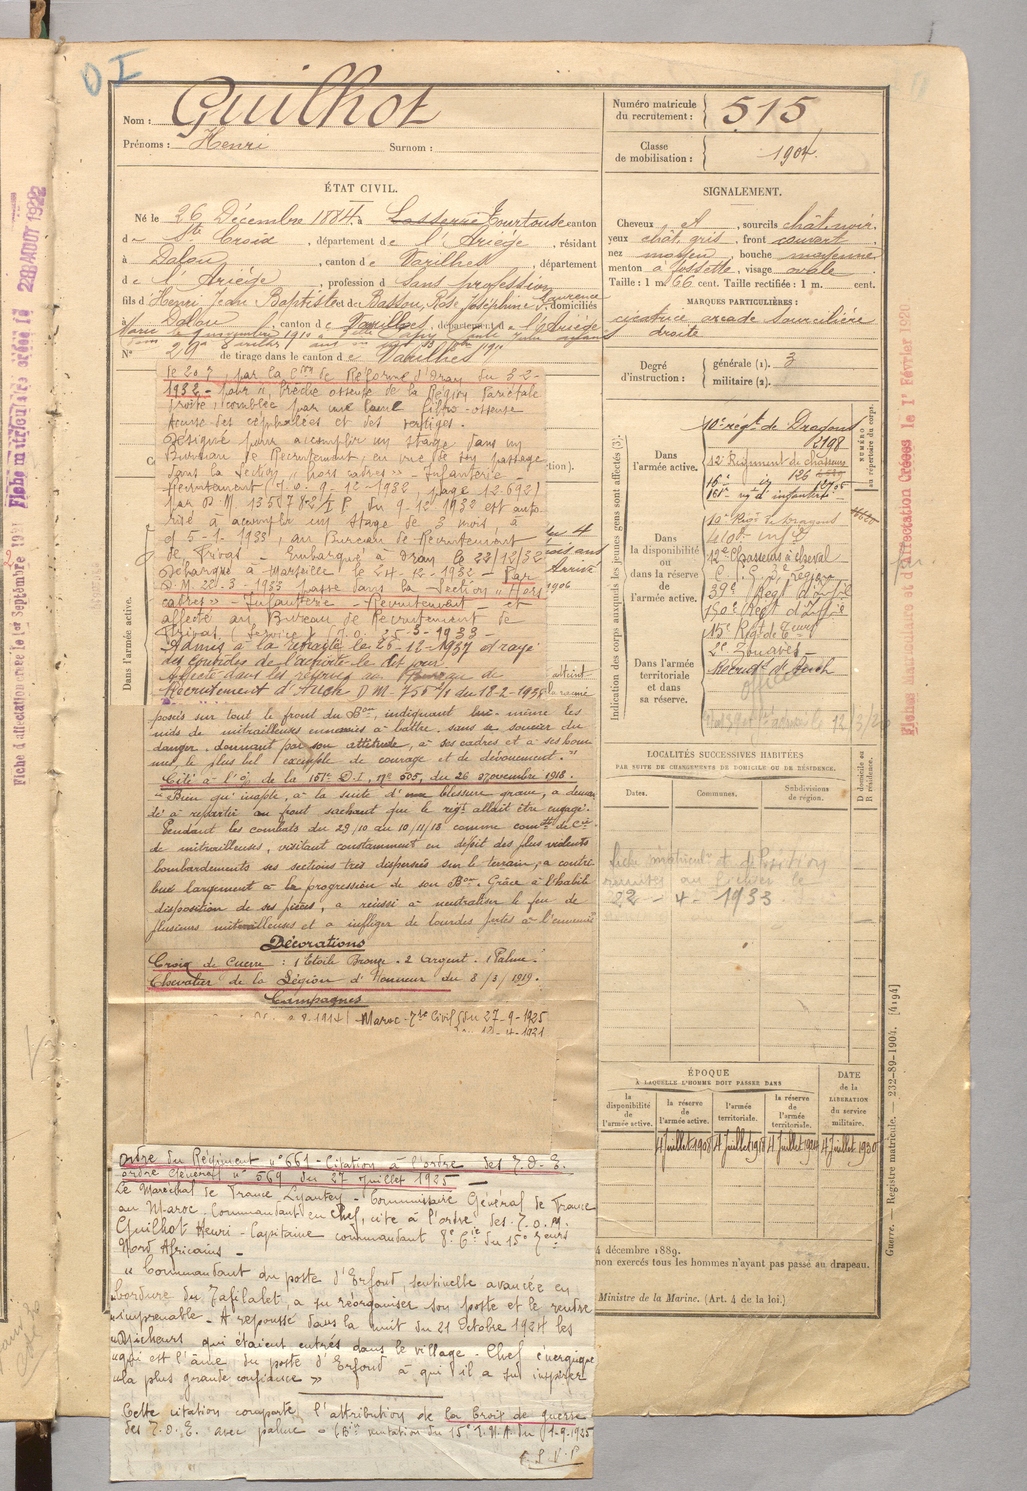 Guilhot
Nom :
Prénoms : Henri Surnom :
Numéro matricule du recrutement : 515
Classe de mobilisation : 1904.
ÉTAT CIVIL.
Né le 26 Décembre 1884, à Lasserre Tourtouse canton
de Ste Croix, département de l'Ariège, résidant
à Dalou, canton de Varilhes, département
de l'Ariège, profession d sans profession
fils de Henri Jean Baptiste et de Bassou, Rose Joséphine Laurence domiciliés
à Dalou, canton de Varilhes, département de l'Ariège
N° 29 de tirage dans le canton de Varilhes
SIGNALEMENT.
Cheveux et, sourcils chât. noir.
yeux chât. gris, front couvert
nez moyen, bouche moyenne
menton à fossette, visage ovale
Taille : 1 m. 66 cent. Taille rectifiée : 1 m. cent.
MARQUES PARTICULIÈRES :
cicatrice arcade sourcilière
droite
Degré d'instruction : générale (1). 3
militaire (2).
de 20 % par la Con de Réforme d'Oran du 3-2-
1932 - pour " brèche osseuse de la Région Pariétale
droite, comblée par une lame fibro-osseuse
accuse des céphalées et des vertiges.
Désigné pour accomplir un stage dans un
Bureau de Recrutement, en vue de son passage
dans la Section "hors cadres" Infanterie -
Recrutement (J.O. 9-12-1932, page 12.692)
par D.M. 13567 du 9-12-1932 est auto-
risé à accomplir un stage de 3 mois, à
d 5-1-1933, au Bureau de Recrutement
de Privas - Embarqué à Oran le 23/12/32
Débarqué à Marseille le 24-12-1932 - Par
D.M. 22-3-1933 passe dans la Section "Hors
cadres" - Infanterie - Recrutement - et
affecté au Bureau de Recrutement de
Privas (Service) J.O. 25-3-1933 -
Admis à la retraite le 25-12-1937 et rayé
des contrôles de l'activité le dit jour
Affecté dans les réserves au Bureau de
Recrutement d'Auch D.M. 7507/1 du 18-2-1938
Dans l'armée active.
posés sur tout le front du Bon, indiquant lui-même les
nids de mitrailleuses ennemis à battre, sans se soucier du
danger, donnant par son attitude, à ses cadres et à ses hom
mes, le plus bel exemple de courage et de dévouement."
Cité à l'O/ de la 151e D.I, no 505, du 26 Novembre 1918.
"Bien qu'inapte, à la suite d'une blessure grave, a deman
dé à repartir au front sachant que le régt allait être engagé.
Pendant les combats du 29/10 au 10/11/18 comme comdt de Cie
de mitrailleuses, visitant constamment en dépit des plus violents
bombardements ses sections très dispersées sur le terrain, a contri
bué largement à la progression de son Bon. Grâce à l'habile
disposition de ses pièces, a réussi à neutraliser le feu de
plusieurs mitrailleuses et à infliger de lourdes pertes à l'ennemi
Décorations
Croix de Guerre : 1 Etoile Bronze. 2 argent. 1 Palme.
Chevalier de la Légion d'Honneur du 8/3/1919.
Campagnes
Maroc - 7me Civil (du 27-9-1925
Ordre du Régiment n° 661 - Citation à l'ordre des T.O.E.
ordre Général n° 569 du 27 Juillet 1925 -
Le Maréchal de France Lyautey - Commissaire Général de France
au Maroc - Commandant en Chef, cite à l'ordre des T.O.M.
Guilhot Henri - Capitaine commandant 8e Cie du 15e Tirs
Nord Africains -
" Commandant du poste d'Erfoud, sentinelle avancée en
bordure du Tafilalet, a su réorganiser son poste et le rendre
"imprenable - A repoussé dans la nuit du 21 Octobre 1924 les
"Djicheurs qui étaient entrés dans le village - Chef énergique
"qui est l'âme du poste d'Erfoud à qui il a su inspirer
"la plus grande confiance "
Cette citation comporte l'attribution de la Croix de guerre
des T.O.E. avec palme - (Bin mutation du 15e T.N.A. du 1-9-1925
Indication des corps auxquels les jeunes gens sont affectés (3).
NUMÉRO au répertoire du corps.
Dans l'armée active.
10e régt de Dragons 2198
12e Régiment de chasseurs
16e ig 126
161e rgt d'infanterie
Dans la disponibilité ou dans la réserve de l'armée active.
10e Régt de Dragons
410e inf
12e Chasseurs à cheval
39e Régt d'infie
150e Régt d'Infie
15e Régt de Tirs
2e Zouaves -
Dans l'armée territoriale et dans sa réserve.
Recrutt d'Auch
LOCALITÉS SUCCESSIVES HABITÉES
PAR SUITE DE CHANGEMENTS DE DOMICILE OU DE RÉSIDENCE.
Dates. Communes. Subdivisions de région. D domicile ou R résidence.
22 - 4 - 1933
ÉPOQUE
À LAQUELLE L'HOMME DOIT PASSER DANS
la disponibilité de l'armée active. la réserve de l'armée active. l'armée territoriale. la réserve de l'armée territoriale. DATE de la LIBÉRATION du service militaire.
4 Juillet 1908 4 Juillet 1918 4 Juillet 1924 4 Juillet 1930
4 décembre 1889.
non exercés tous les hommes n'ayant pas passé au drapeau.
Ministre de la Marine. (Art. 4 de la loi.)
Guerre. — Registre matricule. — 232-89-1904. [4194]
Fiche Matriculaire et d'affectation Créées le 1er Février 1920
Fiche d'affectation créée le 1er Septembre
Fiche matriculaire créée le 22 AOUT 1922